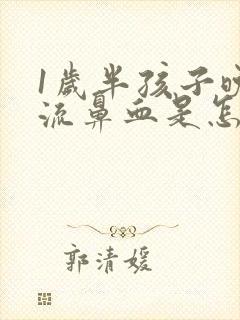 1歲半孩子晚
流鼻血是怎
郭清媛